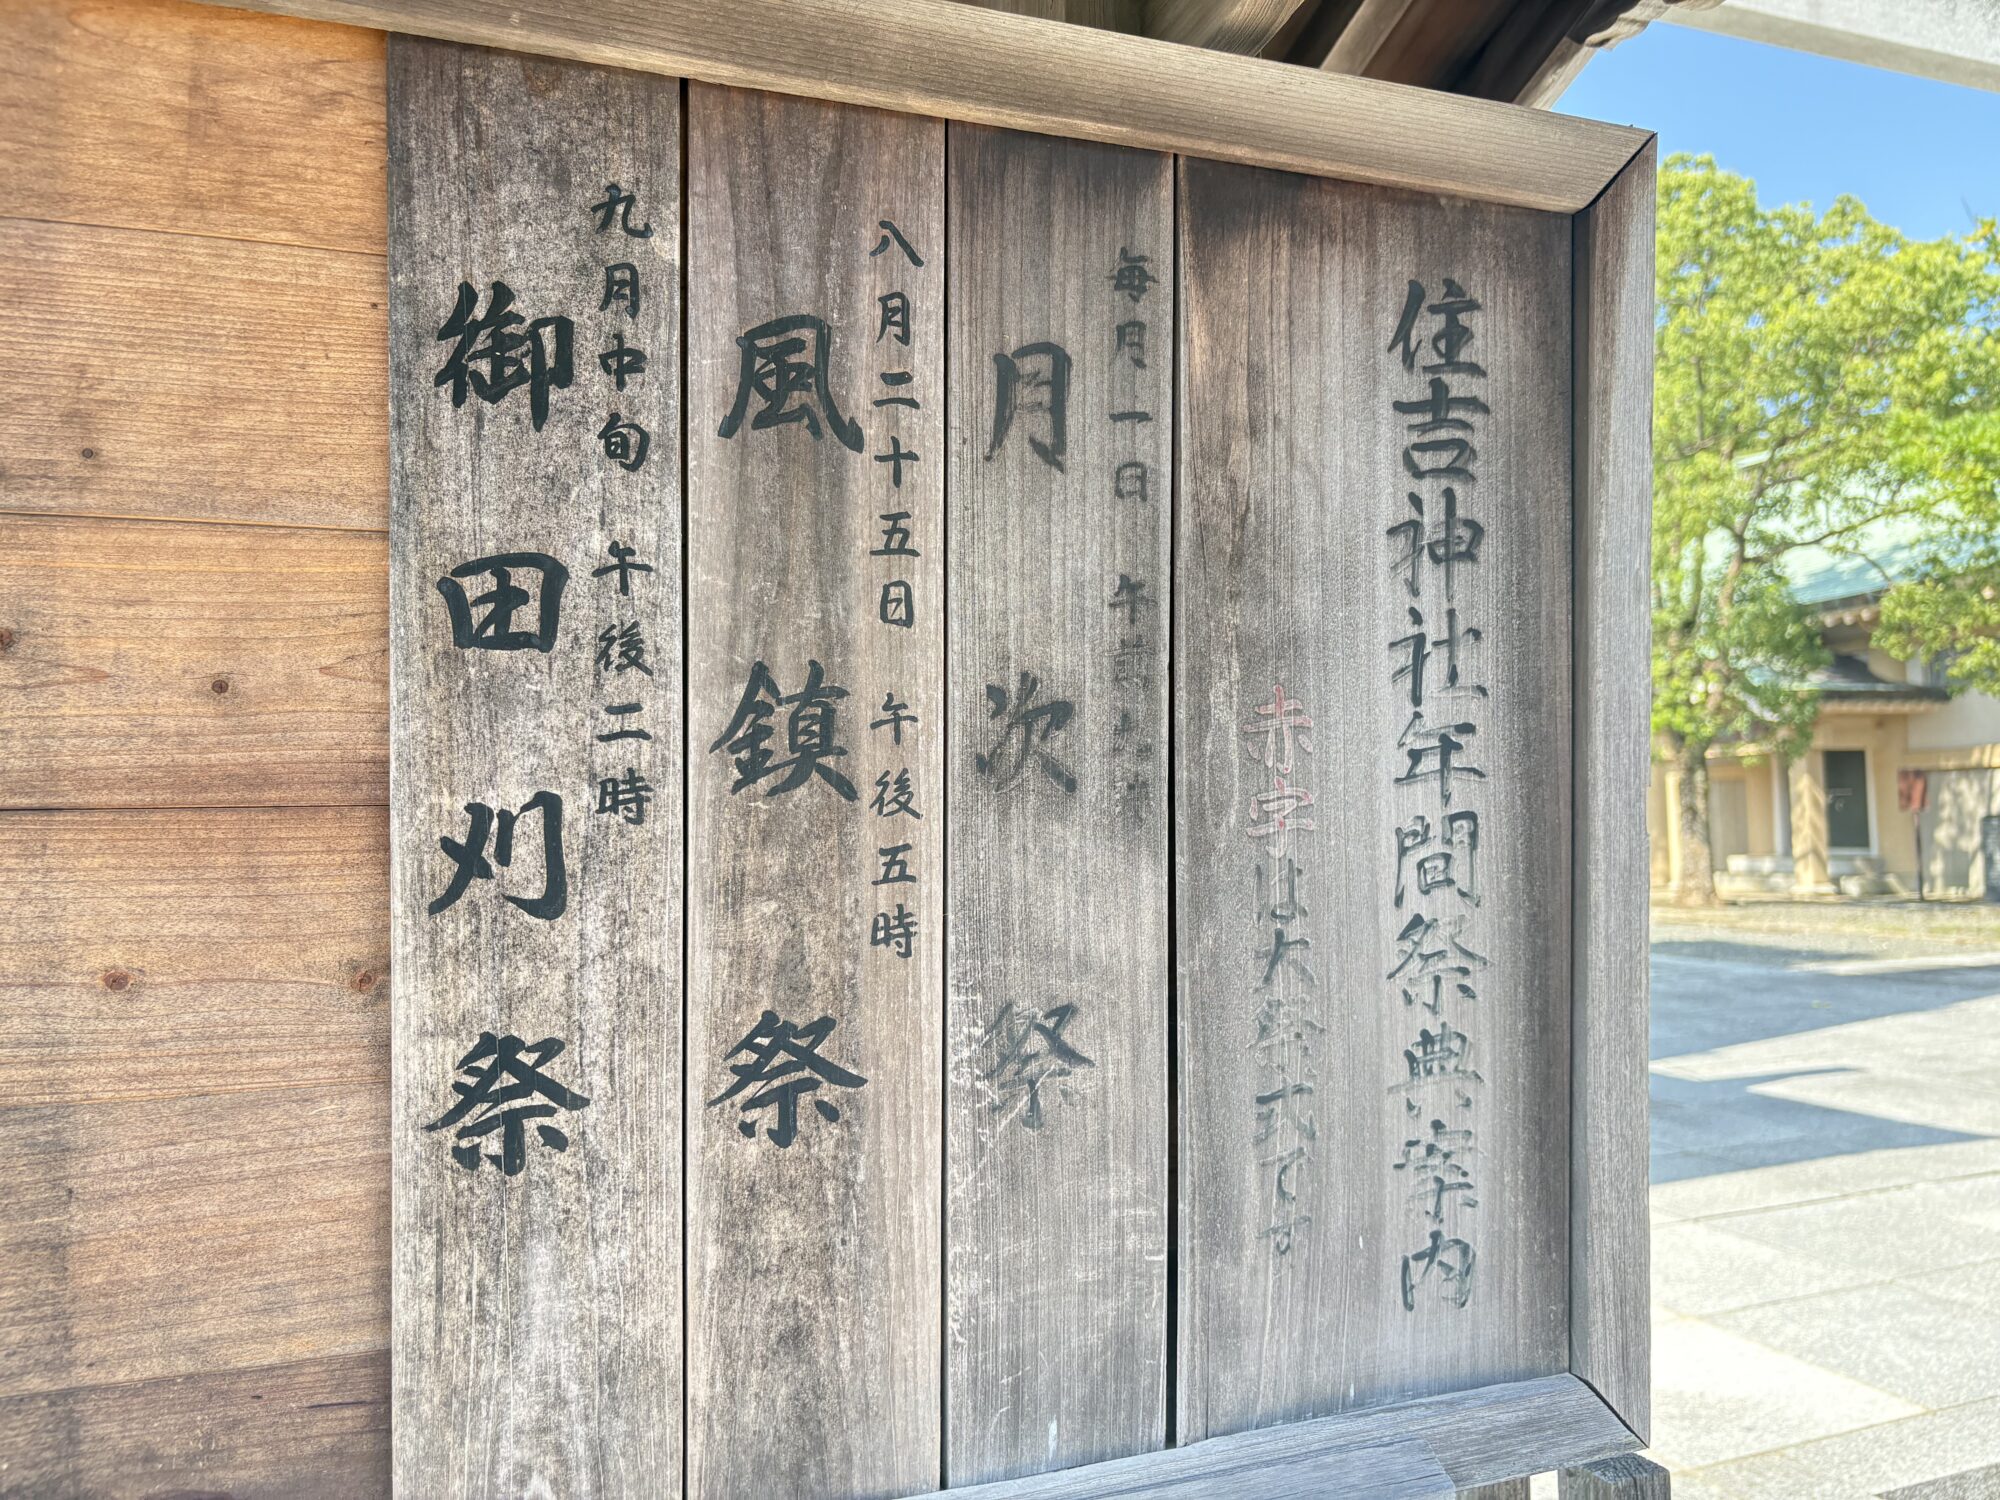 住吉神社年間祭典案内
赤字は大祭式です
毎月一日 午前九時
月次祭
八月二十五日 午後五時
風鎮祭
九月中旬 午後二時
御田刈祭